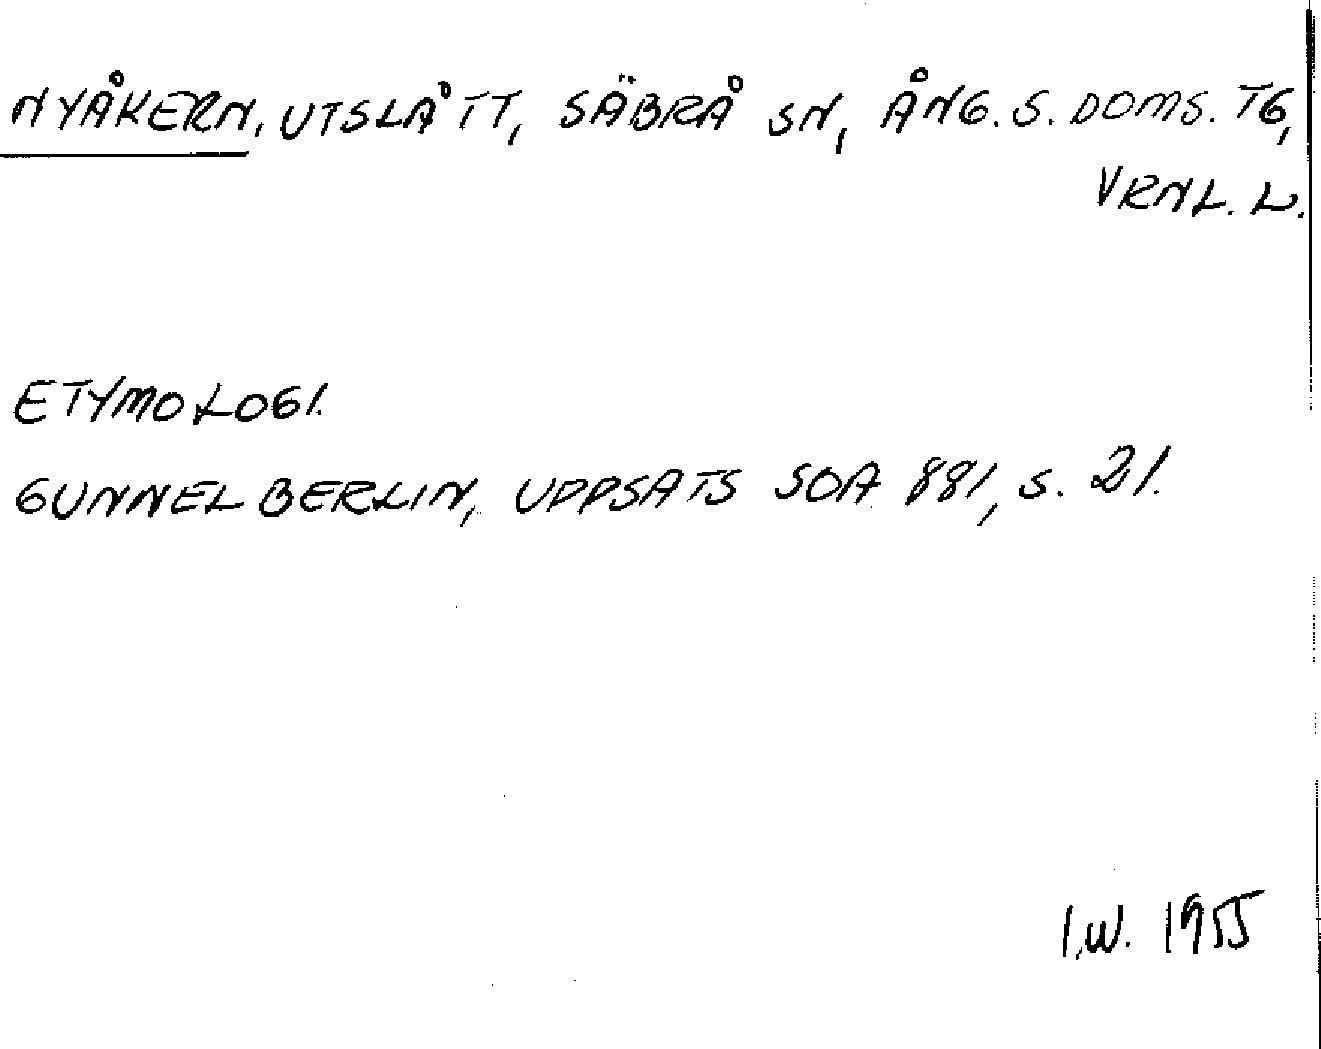 NYÅKERN, UTSLÅTT, SÄBRÅ SN, ÅNG. S. DOMS. TG,
VRNL. L.
ETYMOLOGI.
GUNNEL BERLIN, UPPSATS SOA 881, S. 21.
I.W. 1955